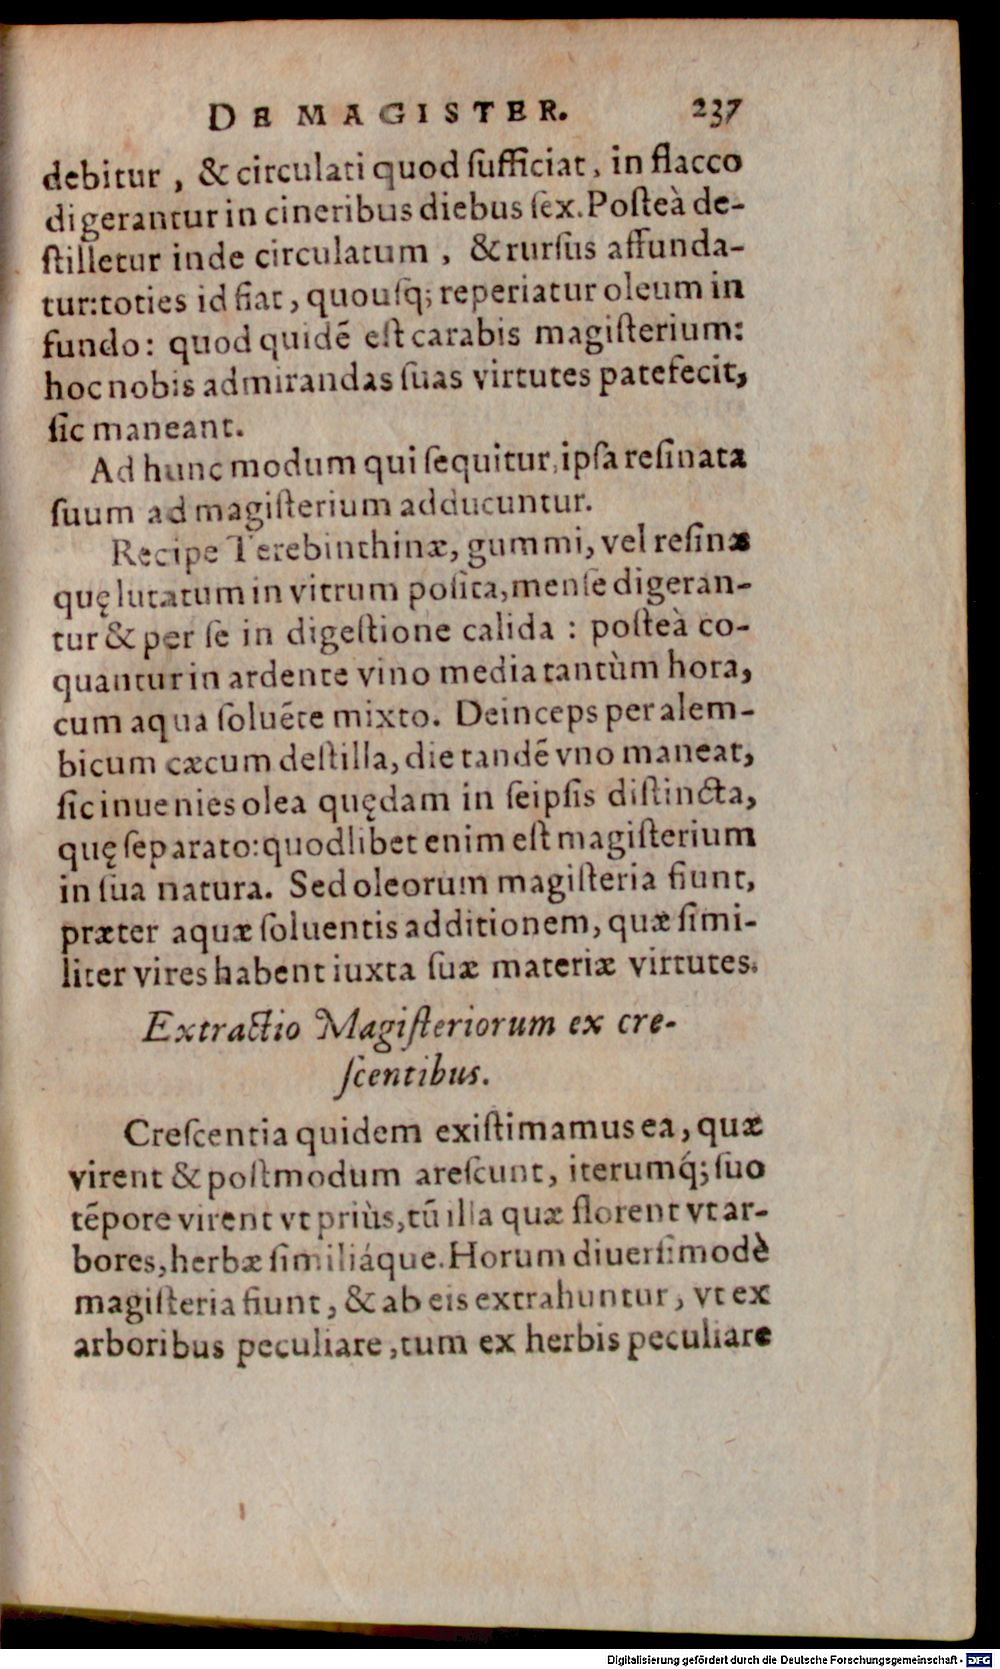 DE MAGISTER. 237
debitur, & circulati quod ſufficiat, in flacco
digerantur in cineribus diebus ſex. Poſteà de-
ſtilletur inde circulatum, & rurſus affunda-
tur: toties id fiat, quouſq; reperiatur oleum in
fundo: quod quidē eſt carabis magiſterium:
hoc nobis admirandas ſuas virtutes patefecit,
ſic maneant.
Ad hunc modum qui ſequitur, ipſa reſinata
ſuum ad magiſterium adducuntur.
Recipe Terebinthinæ, gummi, vel reſinæ
quę lutatum in vitrum poſita, menſe digeran-
tur & per ſe in digeſtione calida: poſteà co-
quantur in ardente vino media tantùm hora,
cum aqua ſoluēte mixto. Deinceps per alem-
bicum cæcum deſtilla, die tandē vno maneat,
ſic inuenies olea quędam in ſeipſis diſtincta,
quę ſeparato: quodlibet enim eſt magiſterium
in ſua natura. Sed oleorum magiſteria fiunt,
præter aquæ ſoluentis additionem, quæ ſimi-
liter vires habent iuxta ſuæ materiæ virtutes.
Extractio Magiſteriorum ex cre-
ſcentibus.
Creſcentia quidem exiſtimamus ea, quæ
virent & poſtmodum areſcunt, iterumq́; ſuo
tēpore virent vt priùs, tū illa quæ florent vt ar-
bores, herbæ ſimiliáque. Horum diuerſimodè
magiſteria fiunt, & ab eis extrahuntur, vt ex
arboribus peculiare, tum ex herbis peculiare
Digitalisierung gefördert durch die Deutsche Forschungsgemeinschaft - DFG